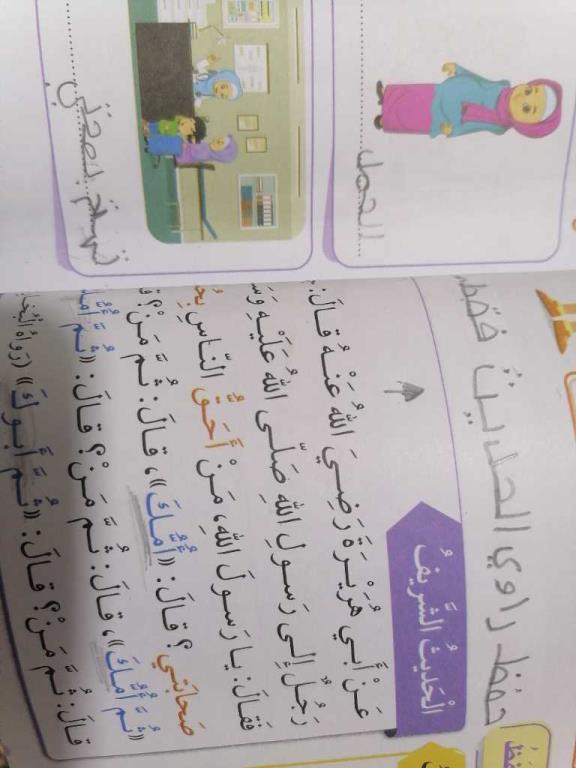 حفظ راوي الحديث فقط
الْحَديثُ الشَّريفُ
عَنْ أَبي هُرَيْرَةَ رَضِيَ اللهُ عَنْهُ قالَ:
رَجُلٌ إِلى رَسولِ اللهِ صَلّى اللهُ عَلَيْهِ
فَقالَ: يا رَسولَ اللهِ، مَنْ أَحَقُّ النّاسِ
صَحابَتي؟ قالَ: «أُمُّكَ»، قالَ: ثُمَّ مَنْ؟
«ثُمَّ أُمُّكَ»، قالَ: ثُمَّ مَنْ؟ قالَ: «ثُمَّ
قالَ: ثُمَّ مَنْ؟ قالَ: «ثُمَّ أَبوكَ» (رَواهُ
الحمل
تهتم بصحتي